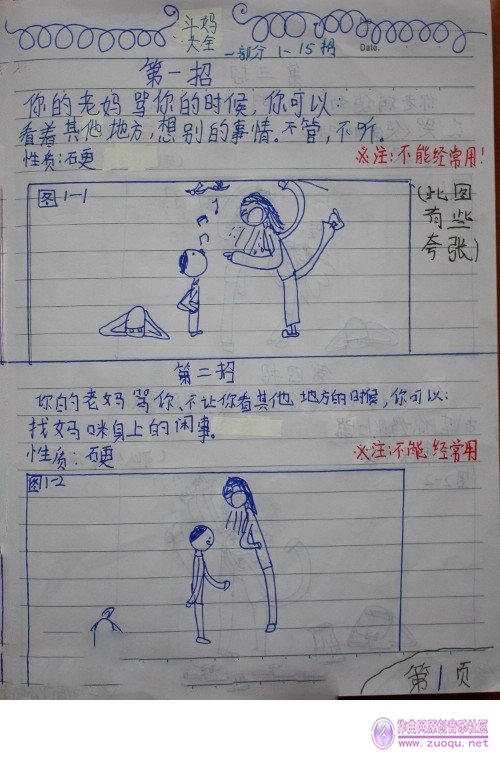 斗妈
大全
一部分 1-15招
Date.
第一招
你的老妈骂你的时候,你可以:
看着其他地方,想别的事情。不管,不听。
性质:石更
※注:不能经常用!
图1-1
(此图
有些
夸张)
第二招
你的老妈骂你、不让你看其他地方的时候,你可以:
找妈咪身上的闲事。
性质:石更
※注:不能经常用
图1-2
第1页
作曲网原创音乐社区
www.zuoqu.net